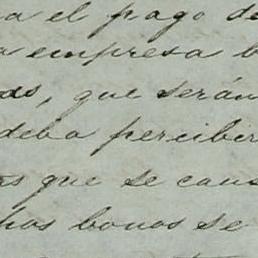 a el pago de
a empresa b
as, que serán
deba perciber
as que se caus
hos bonos se